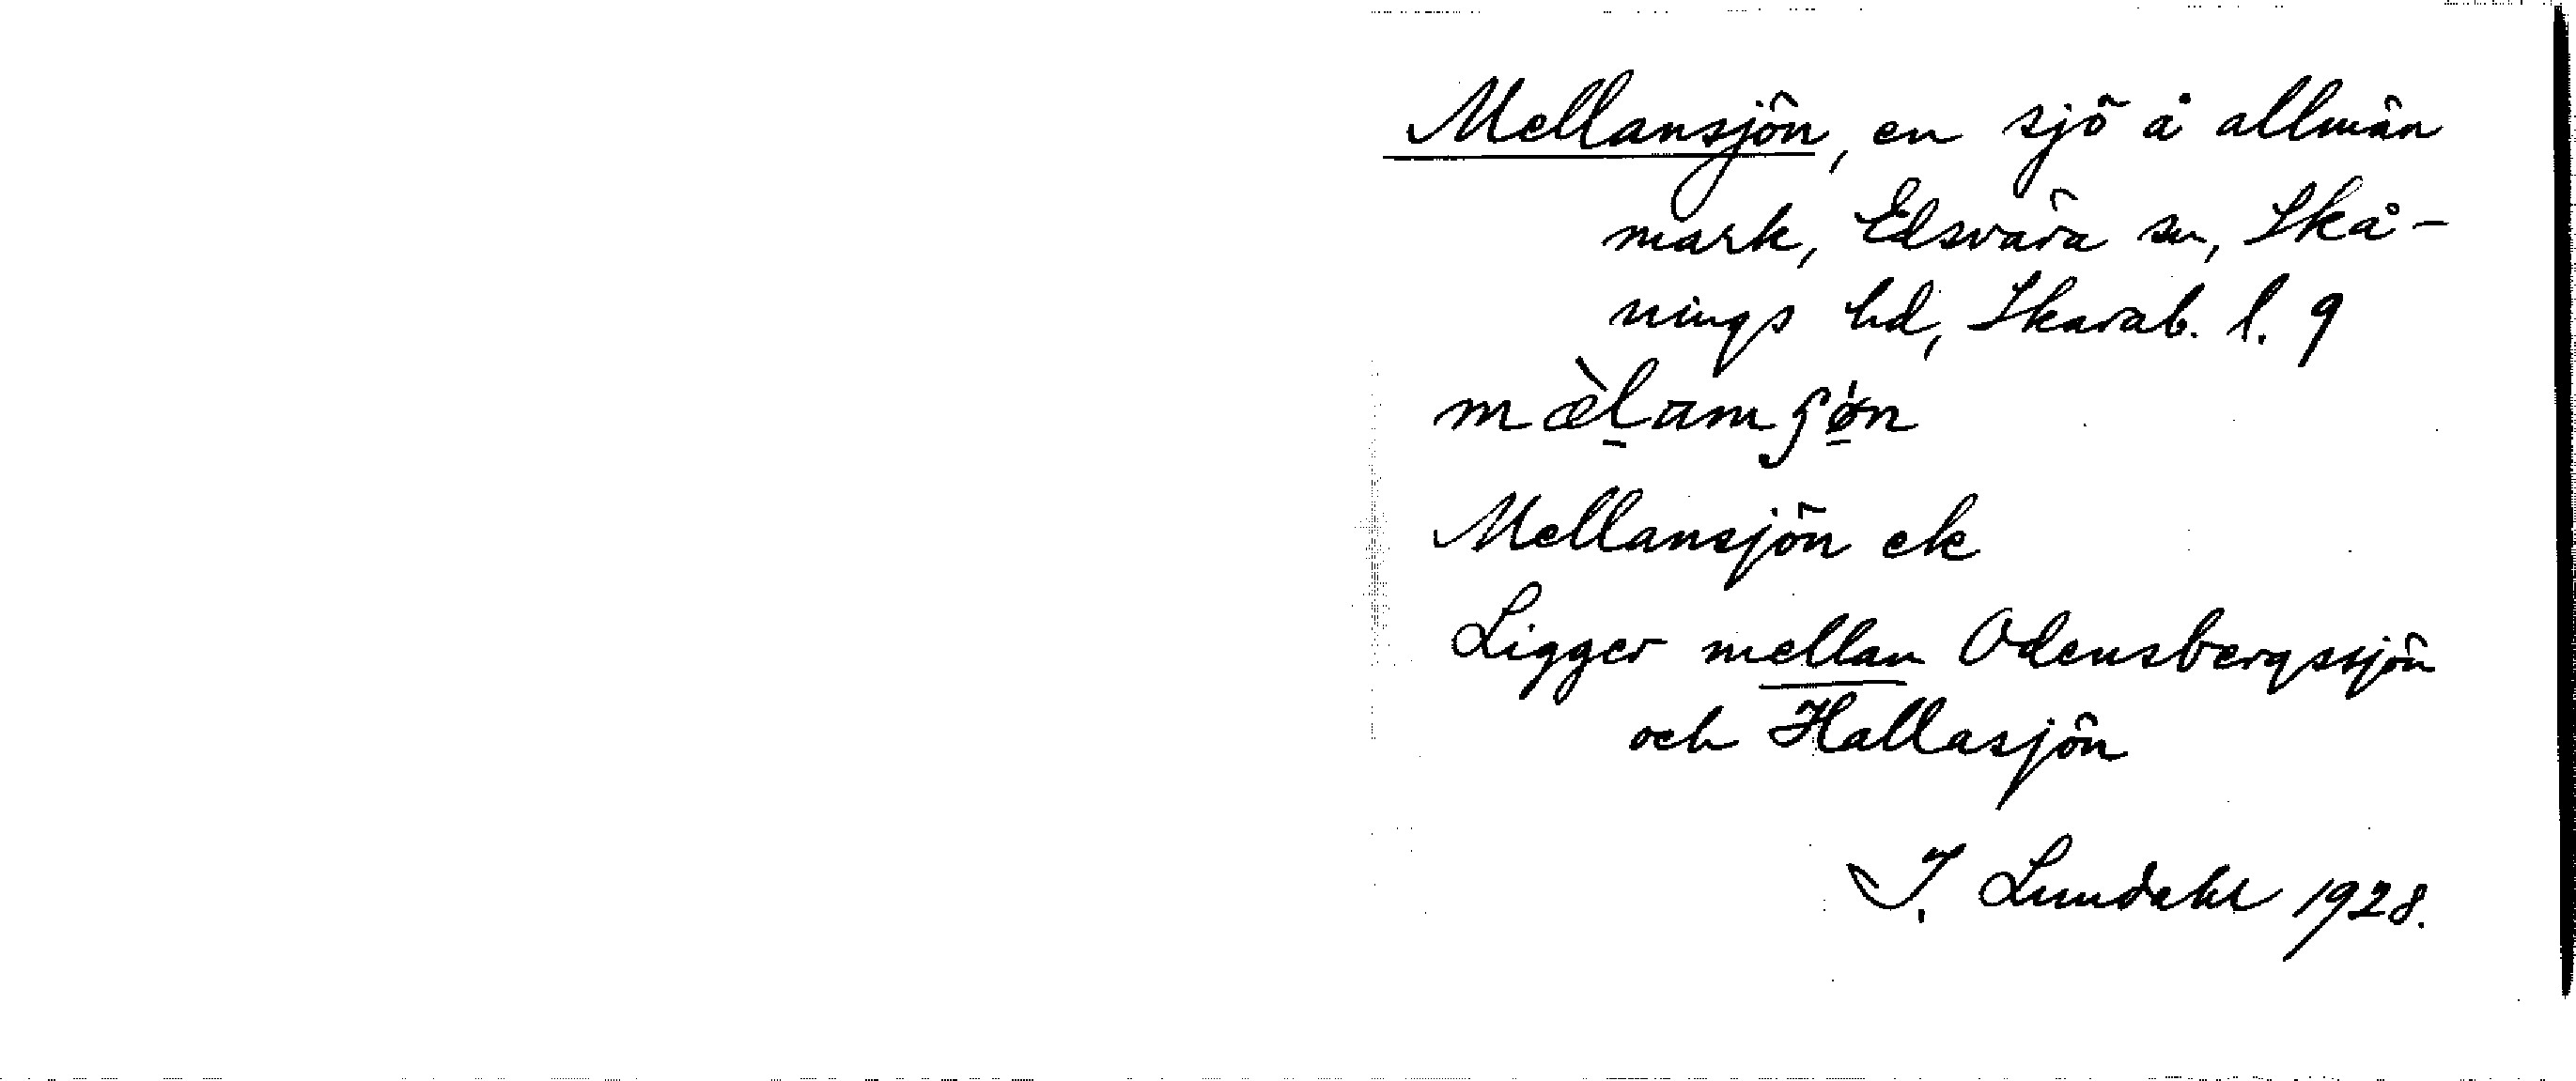 Mellansjön, en sjö å allmän
mark, Edsvära sn, Skå-
nings hd, Skarab. l. 9
mæ̀l̠amʃǿ̠n
Mellansjön ek
Ligger mellan Odensbergssjön
och Hallasjön
I. Lundahl 1928.